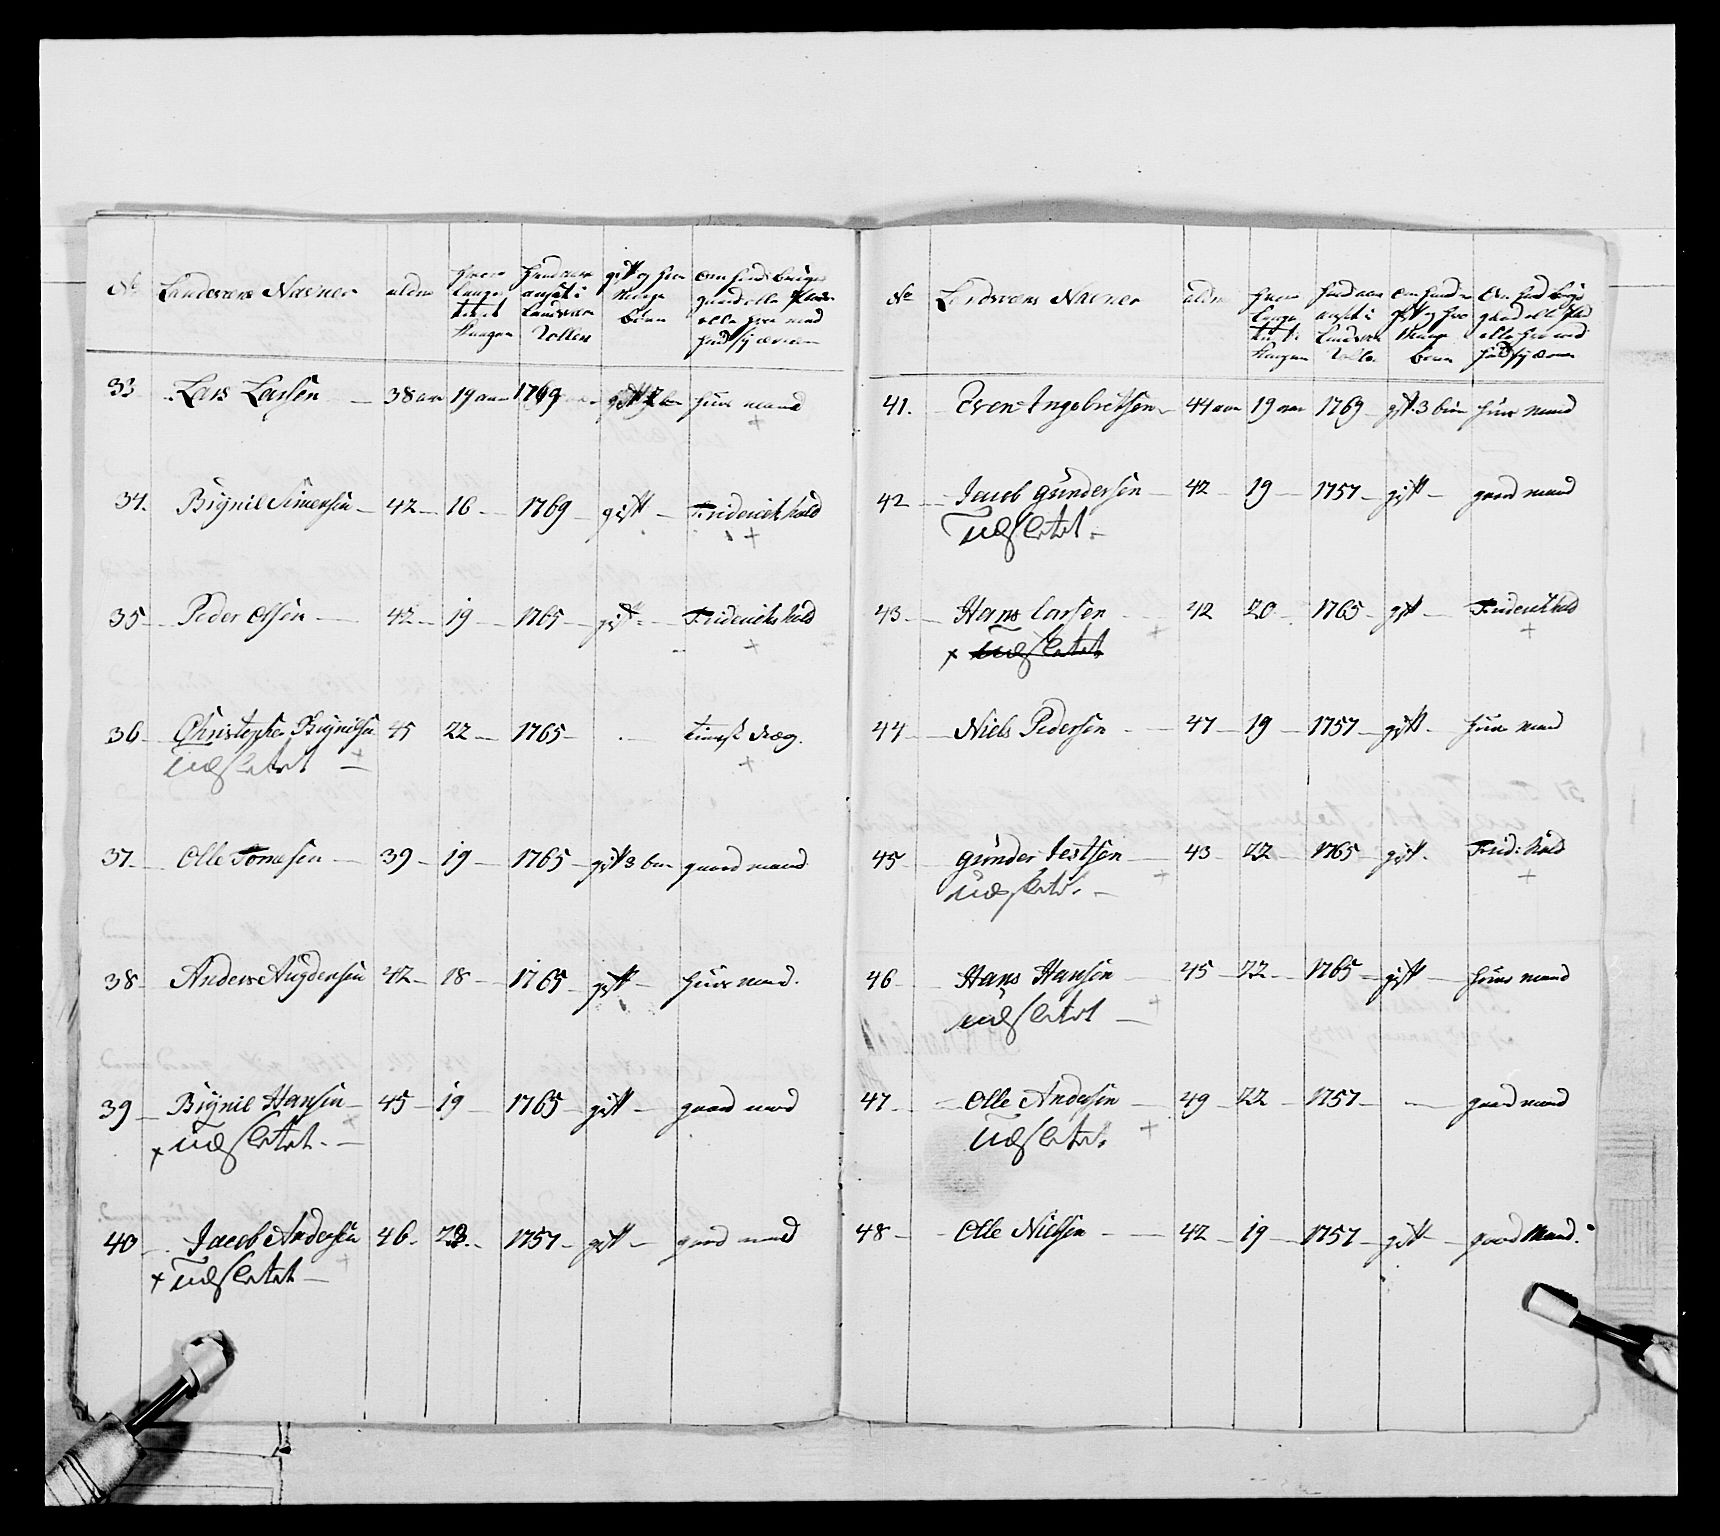 No Landværns Navner alder hvor længe tient Kongen hvad aar ansat i Landværn Rollen gift og hvor Mange børn om hand bruger gaard eller Plads eller hvor med hand sig ernærer
33 Lars Larsen — 38 aar 19 aar 1769 gift 2 børn huus mand
+
34. Brynil Simensen — 42 — 16 — 1769 — gift — Friderichshald
+
35 — Peder Olsen — 42 — 19 — 1765 — gift — Friderichshald
+
36 — Christopher Brynilsen 45 22 — 1765 — tienst dræg.
udsletet — + +
37. — Olle Tomesen — 39 — 19 — 1765 — gift 3 børn gaard mand
38 — Anders Augdensen 42 — 18 — 1765 — gift — huus mand.
39 — Brynil Hansen — 45 — 19 1765 — gift — gaard mand
+ udsletet. — +
40 — Jacob Andersen 46. 23. — 1757 — gift — gaard mand
+ udsletet — +
No Landværns Navner alder hvor længe tient Kongen hvad aar ansat i Landværn Rolle om hand er gift og hvor Mange børn om hand bruger gaard eller Plads eller hvor med hand sig ernærer
41. Even Ingebretsen — 44 aar 19 aar 1769 — gift 3 børn huus mand
42 — Jacob Gundersen — 42 — 19 — 1757 — gift — gaard mand
udsletet.
43 — Hans Larsen 42 20 1765 — gift — Friderichshald
+ udsletet + +
44 — Niels Pedersen — 47 — 19 — 1757 — gift — huus mand
45 — Gunder testsen — 43 — 22 1765 — gift. Frid: hald
udsletet. — + +
46 — Hans Hansen 45 — 22 — 1765 — gift — huus mand
udsletet — +
47 — Olle Andersen — 49 — 22 — 1757 — — gaard mand
udsletet. +
48 — Olle Nielsen — 42 — 19 — 1757 — gift — gaard Mand.